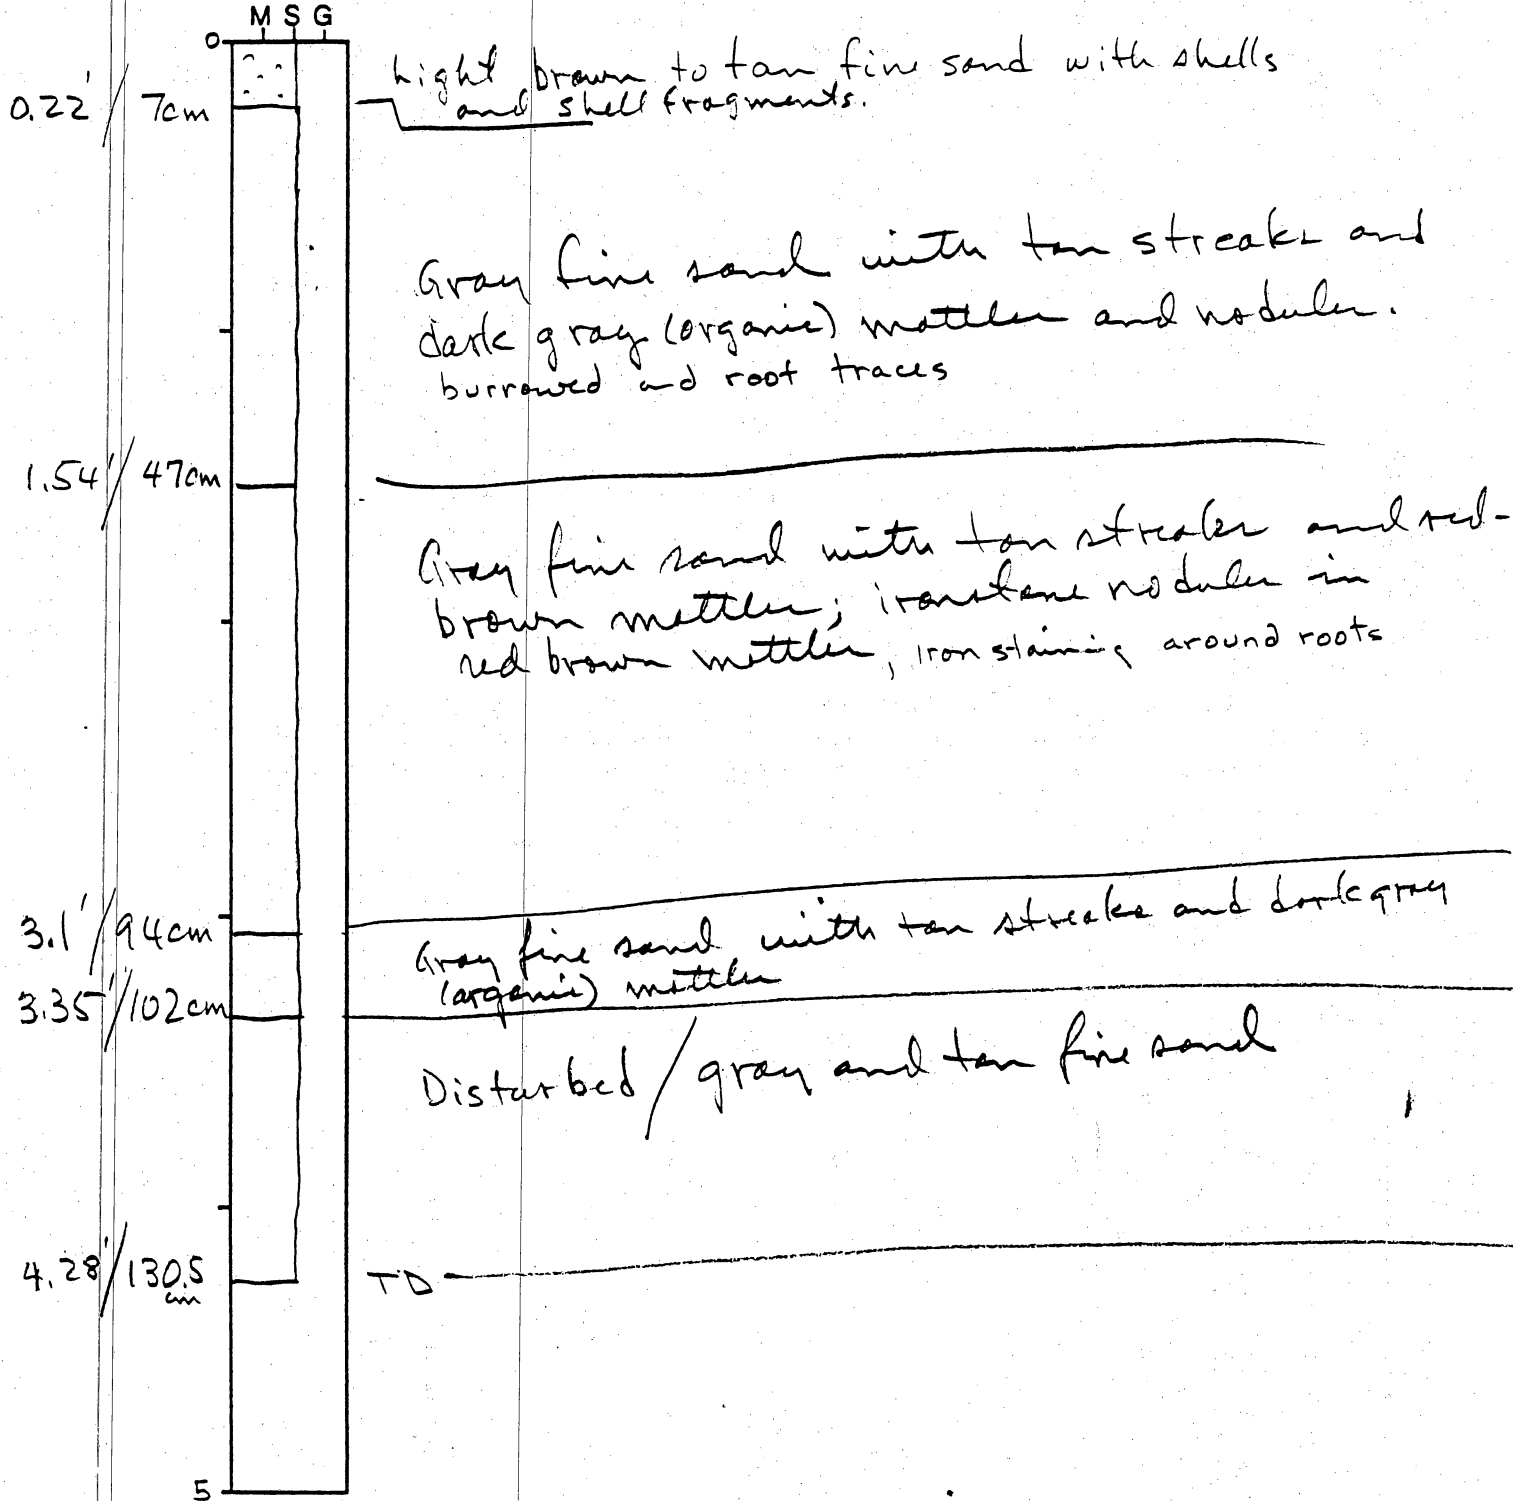 M S G
0
0.22' / 7cm
Light brown to tan fine sand with shells
and shell fragments.
Gray fine sand with tan streaks and
dark gray (organic) mottles and nodules.
burrowed and root traces
1.54' / 47cm
Gray fine sand with tan streaks and red-
brown mottles; ironstone nodules in
red brown mottles, iron staining around roots
3.1' / 94cm
Gray fine sand with tan streaks and dark gray
(organic) mottles
3.35' / 102cm
Disturbed / gray and tan fine sand
4.28' / 130.5
cm
TD
5